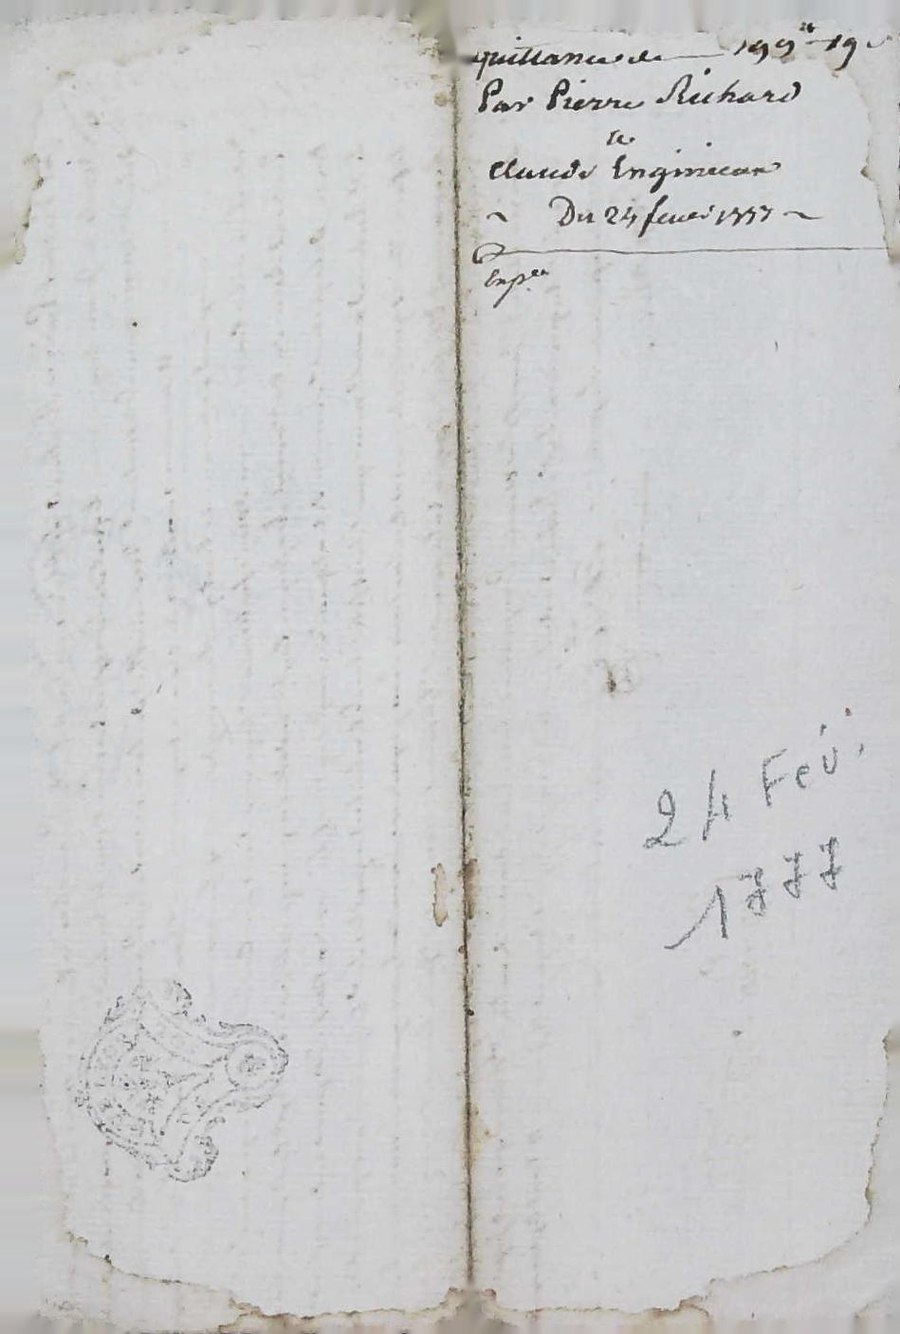 quittance de 199ᵗᵗ 19ˢ
Par Pierre Richard
a
Claude Enginevin
Du 24 fevrier 1777
Exp.ᵉᵉ
24 Fév.
1777